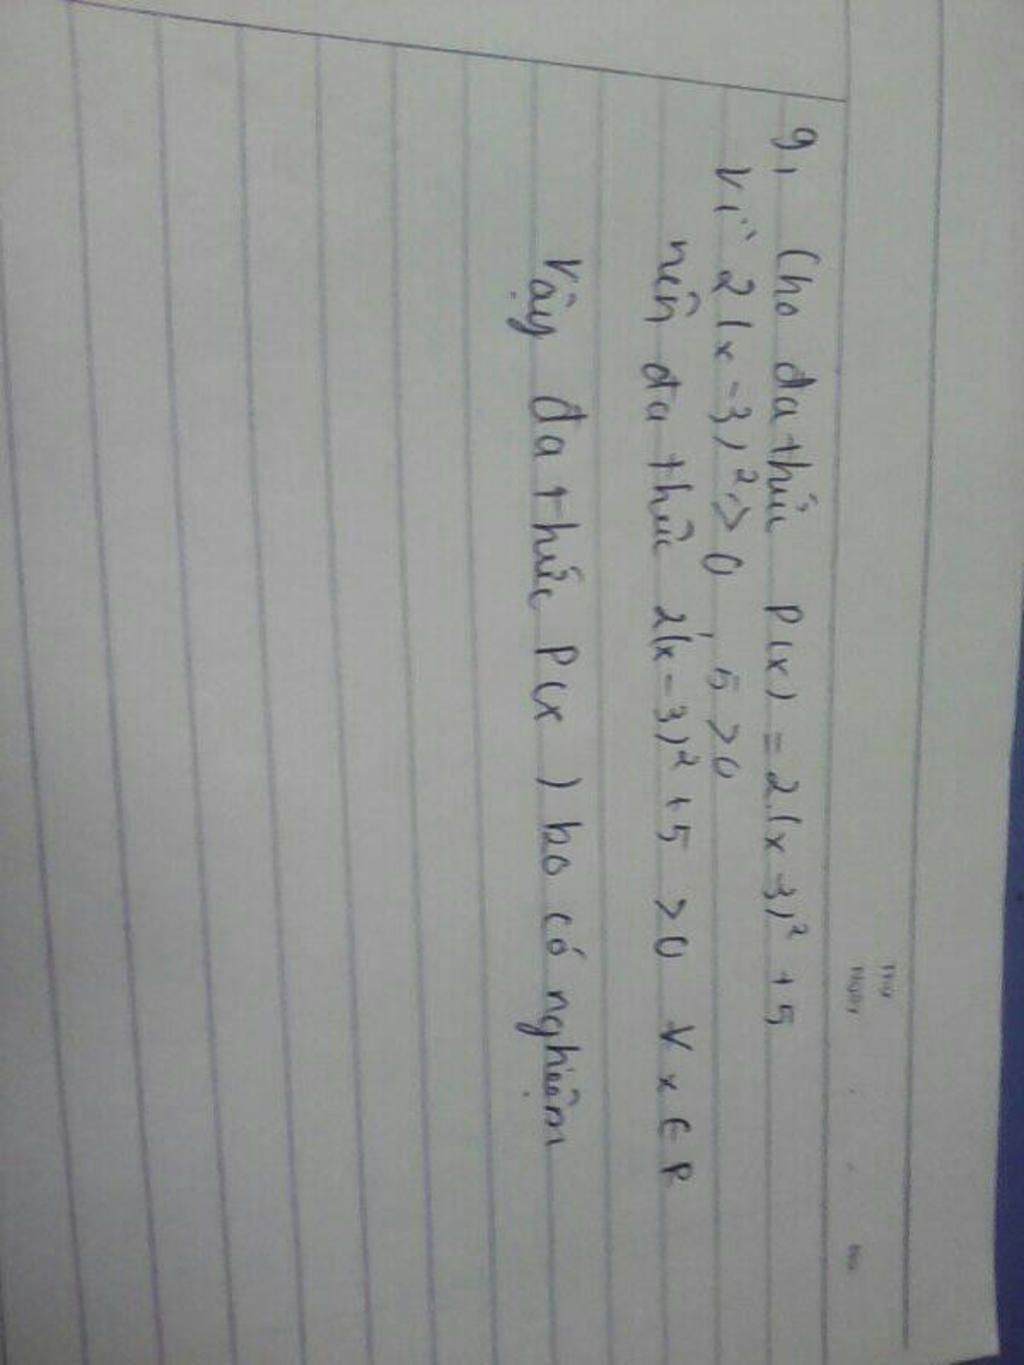 Thứ
Ngày
No.
g, Cho đa thức P(x) = 2.(x-3)² + 5
Vì 2(x-3)² ≥ 0, 5 > 0
nên đa thức 2(x-3)² + 5 > 0 ∀ x ∈ R
Vậy đa thức P(x) ko có nghiệm